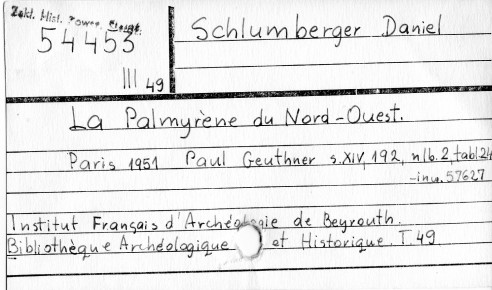 Zakł. Hist. Powsz. Staroż.
54453
III 49
Schlumberger Daniel
La Palmyrène du Nord-Ouest.
Paris 1951 Paul Geuthner s. XIV, 192, nlb. 2, tabl 24
-inw. 57627
Institut Français d'Archéologie de Beyrouth.
Bibliothèque Archéologique et Historique. T. 49